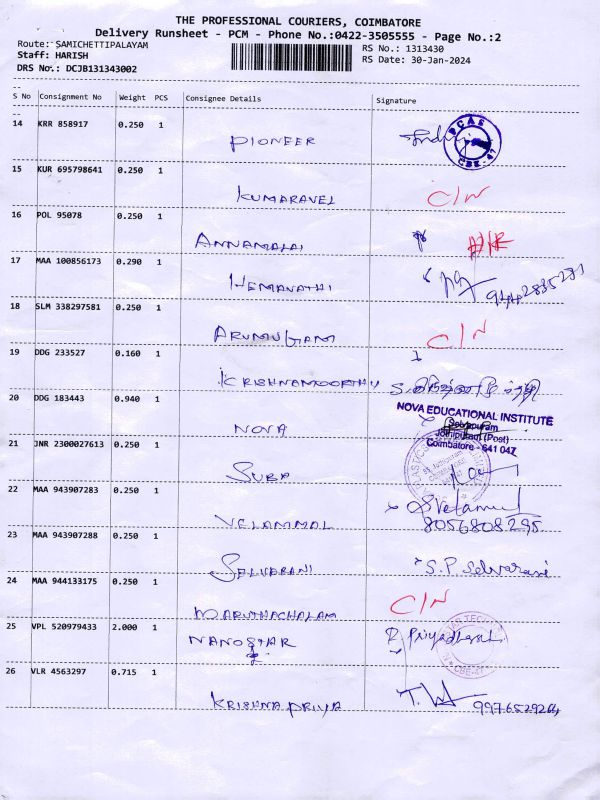 THE PROFESSIONAL COURIERS, COIMBATORE
Delivery Runsheet - PCM - Phone No.:0422-3505555 - Page No.:2
Route: SAMICHETTIPALAYAM RS No.: 1313430
Staff: HARISH RS Date: 30-Jan-2024
DRS No.: DCJB131343002
S No Consignment No Weight PCS Consignee Details Signature
14 KRR 858917 0.250 1
PIONEER
PCAS
CBE-47
15 KUR 695798641 0.250 1
KUMARAVEL C/N
16 POL 95078 0.250 1
ANNAMALAI
17 MAA 100856173 0.290 1
HEMAVATHI
18 SLM 338297581 0.250 1
ARUMUGAM C/N
19 DDG 233527 0.160 1
KRISHNAMOORTHY
20 DDG 183443 0.940 1
NOVA
NOVA EDUCATIONAL INSTITUTE
Selvapuram
Jothipuram (Post)
Coimbatore - 641 047
21 JNR 2300027613 0.250 1
SUBA
22 MAA 943907283 0.250 1
VELAMMAL
8056808295
23 MAA 943907288 0.250 1
SELVARANI S.P Selvarani
24 MAA 944133175 0.250 1
MARUTHACHALAM C/N
25 VPL 520979433 2.000 1
NANOSTAR
CBE-47
26 VLR 4563297 0.715 1
KRISHNA PRIYA